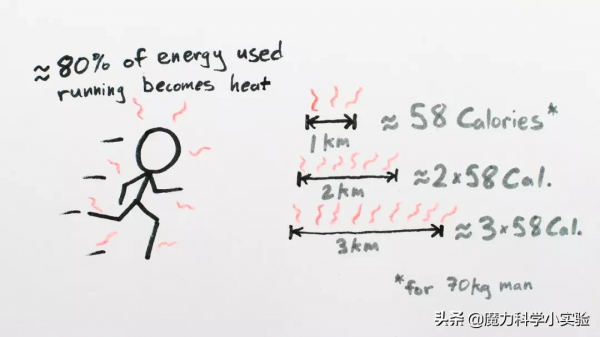 ≈80% of energy used
running becomes heat
≈ 58 Calories*
1 km
≈2×58 Cal.
2km
≈3×58 Cal.
3km
*for 70kg man
头条 @魔力科学小实验